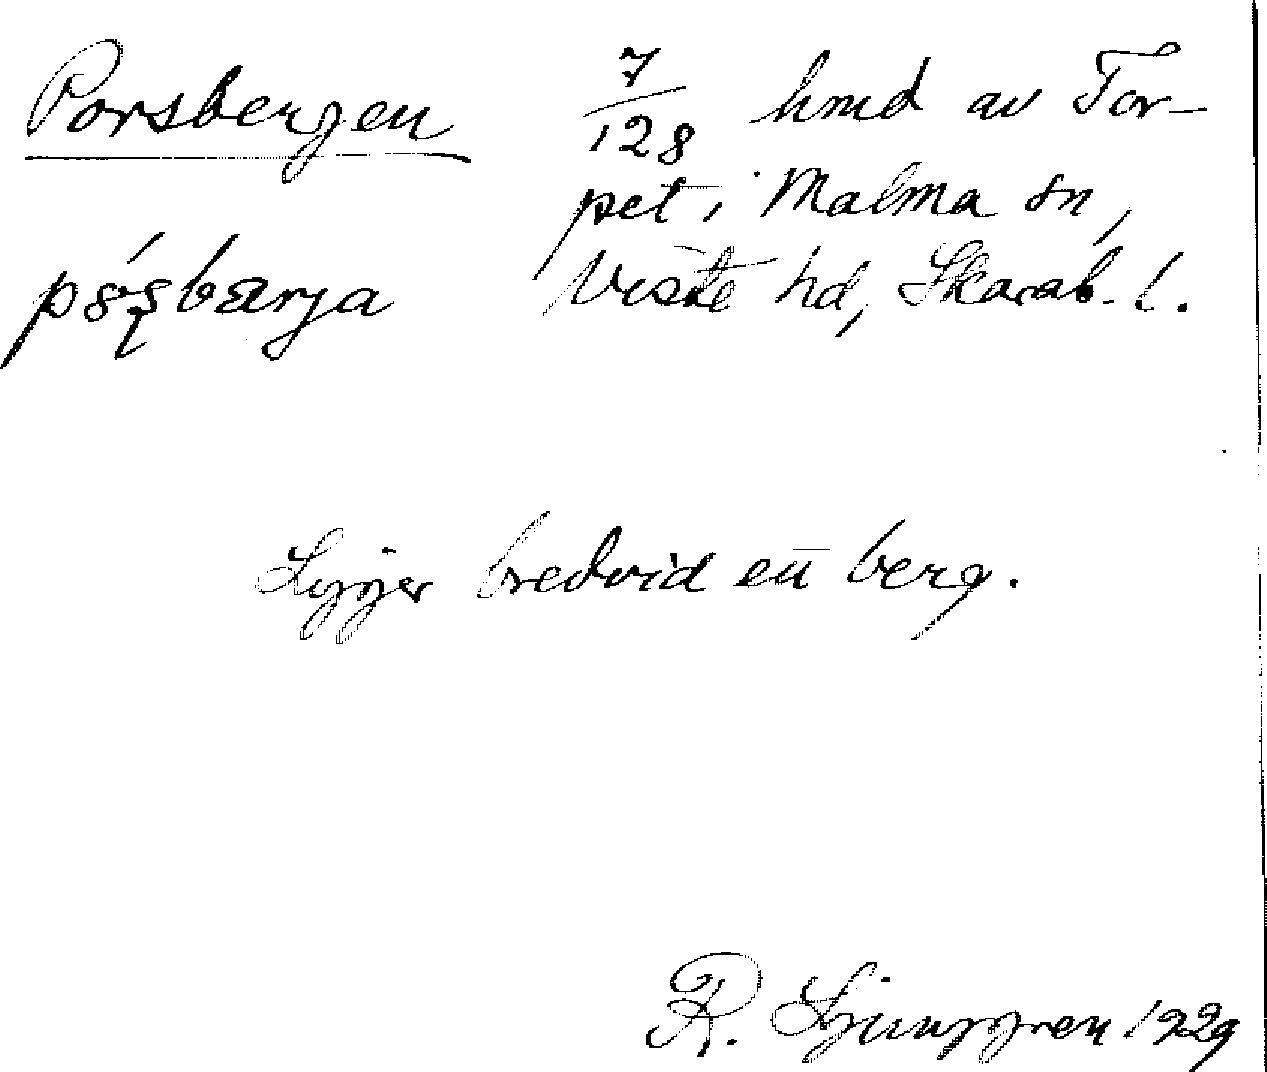 Porsbergen 7/128 hmd av Tor-
pet i Malma sn,
Viste hd, Skarab. l.
Ligger bredvid ett berg.
R. Ljunggren 1929